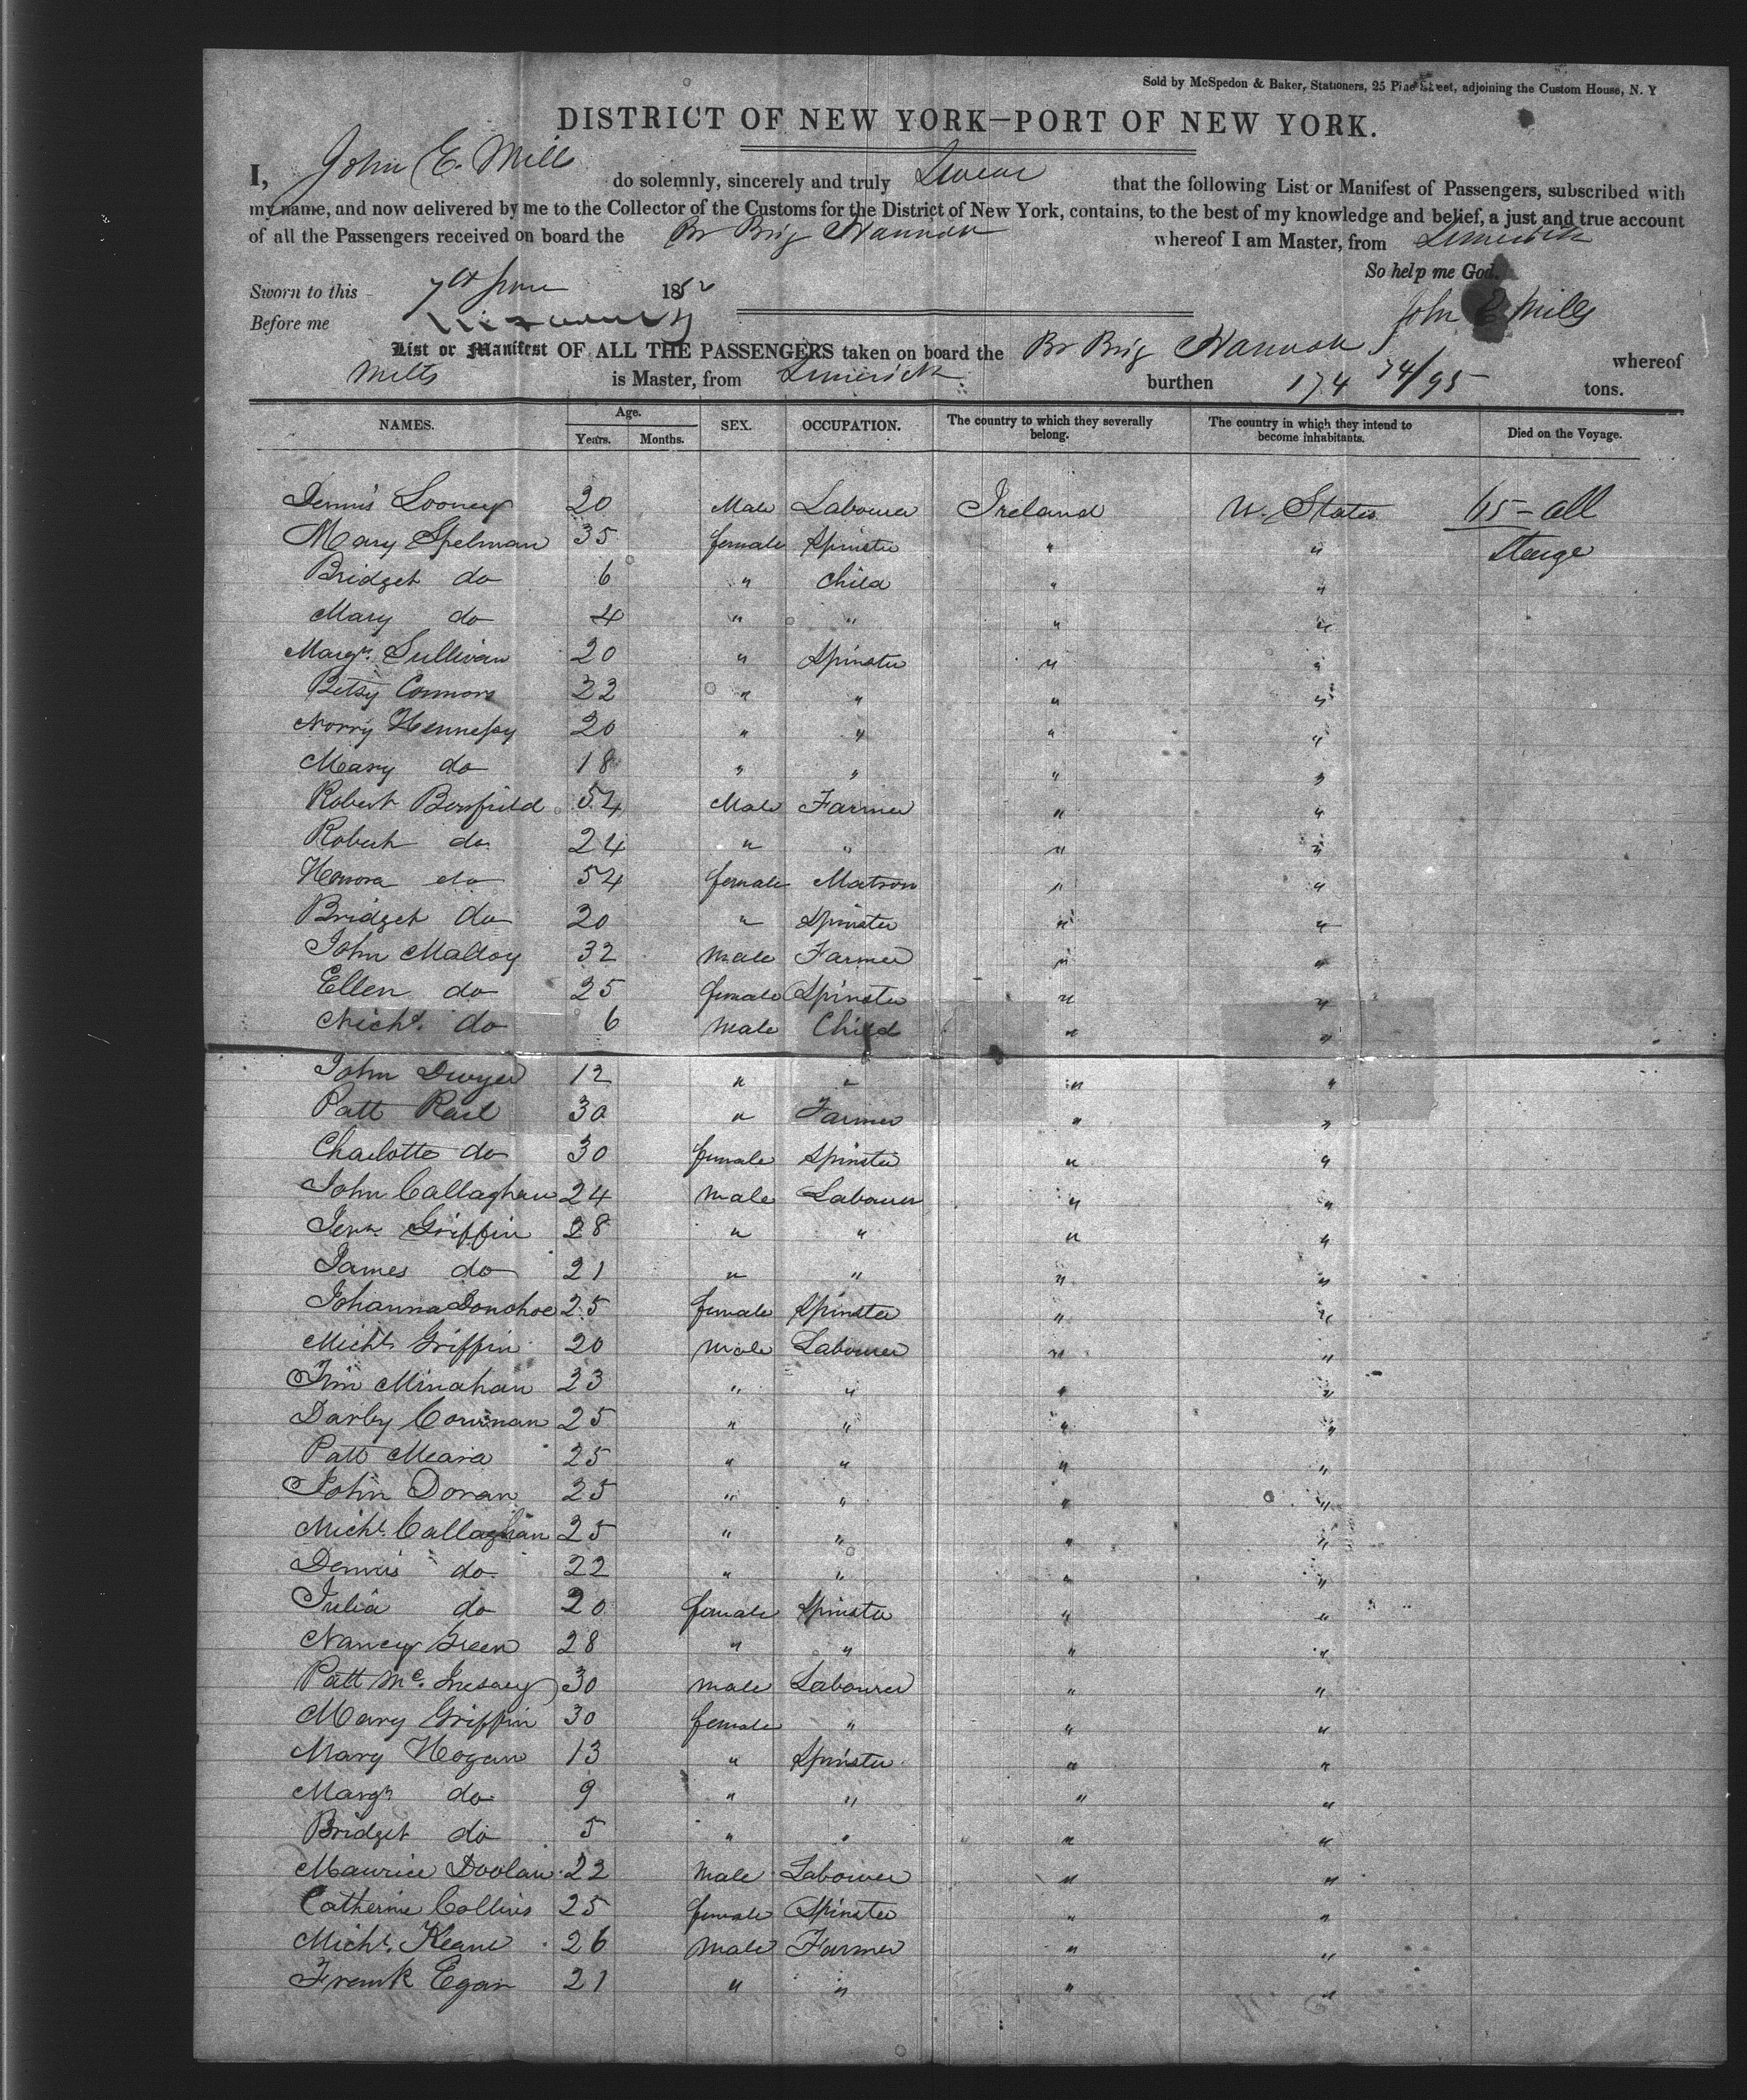 Sold by McSpedon & Baker, Stationers, 25 Pine Street, adjoining the Custom House, N. Y
DISTRICT OF NEW YORK—PORT OF NEW YORK.
I, John E. Mills do solemnly, sincerely and truly Swear that the following List or Manifest of Passengers, subscribed with
my name, and now delivered by me to the Collector of the Customs for the District of New York, contains, to the best of my knowledge and belief, a just and true account
of all the Passengers received on board the Br Brig Hannah whereof I am Master, from Limerick
So help me God.
Sworn to this 7th June 1852
John E Mills
Before me
List or Manifest OF ALL THE PASSENGERS taken on board the Br Brig Hannah whereof
Mills is Master, from Limerick burthen 174 74/95 tons.
NAMES. Age. Years. Months. SEX. OCCUPATION. The country to which they severally belong. The country in which they intend to become inhabitants. Died on the Voyage.
Dennis Looney 20 Male Labourer Ireland U. States 65 - all
Mary Spelman 35 female Spinster " " Steerage
Bridget do 6 " Child " "
Mary do 4 " " " "
Margt. Sullivan 20 " Spinster " "
Betsy Connors 22 " " " "
Norry Hennessy 20 " " " "
Mary do 18 " " " "
Robert 54 Male Farmer " "
Robert do 24 " " " "
Honora do 54 female Matron " "
Bridget do 20 " Spinster " "
John Malloy 32 Male Farmer " "
Ellen do 25 female Spinster " "
Michl. do 6 Male Child " "
John Dwyer 12 " " " "
Patt 30 " Farmer " "
Charlotte do 30 female Spinster " "
John Callaghan 24 Male Labourer " "
Griffin 28 " " " "
James do 21 " " " "
Johanna Donohoe 25 female Spinster " "
Michl Griffin 20 Male Labourer " "
Tim Minahan 23 " " " "
Darby 25 " " " "
Patt Meara 25 " " " "
John Doran 25 " " " "
Michl. Callaghan 25 " " " "
Dennis do 22 " " " "
Julia do 20 female Spinster " "
Nancy Green 28 " " " "
Patt Mc. 30 male Labourer " "
Mary Griffin 30 female " " "
Mary Hogan 13 " Spinster " "
Margt do 9 " " " "
Bridget do 5 " " " "
Maurice Doolan 22 Male Labourer " "
Catherine Collins 25 female Spinster " "
Michl. Keane 26 Male Farmer " "
Frank Egan 21 " " " "